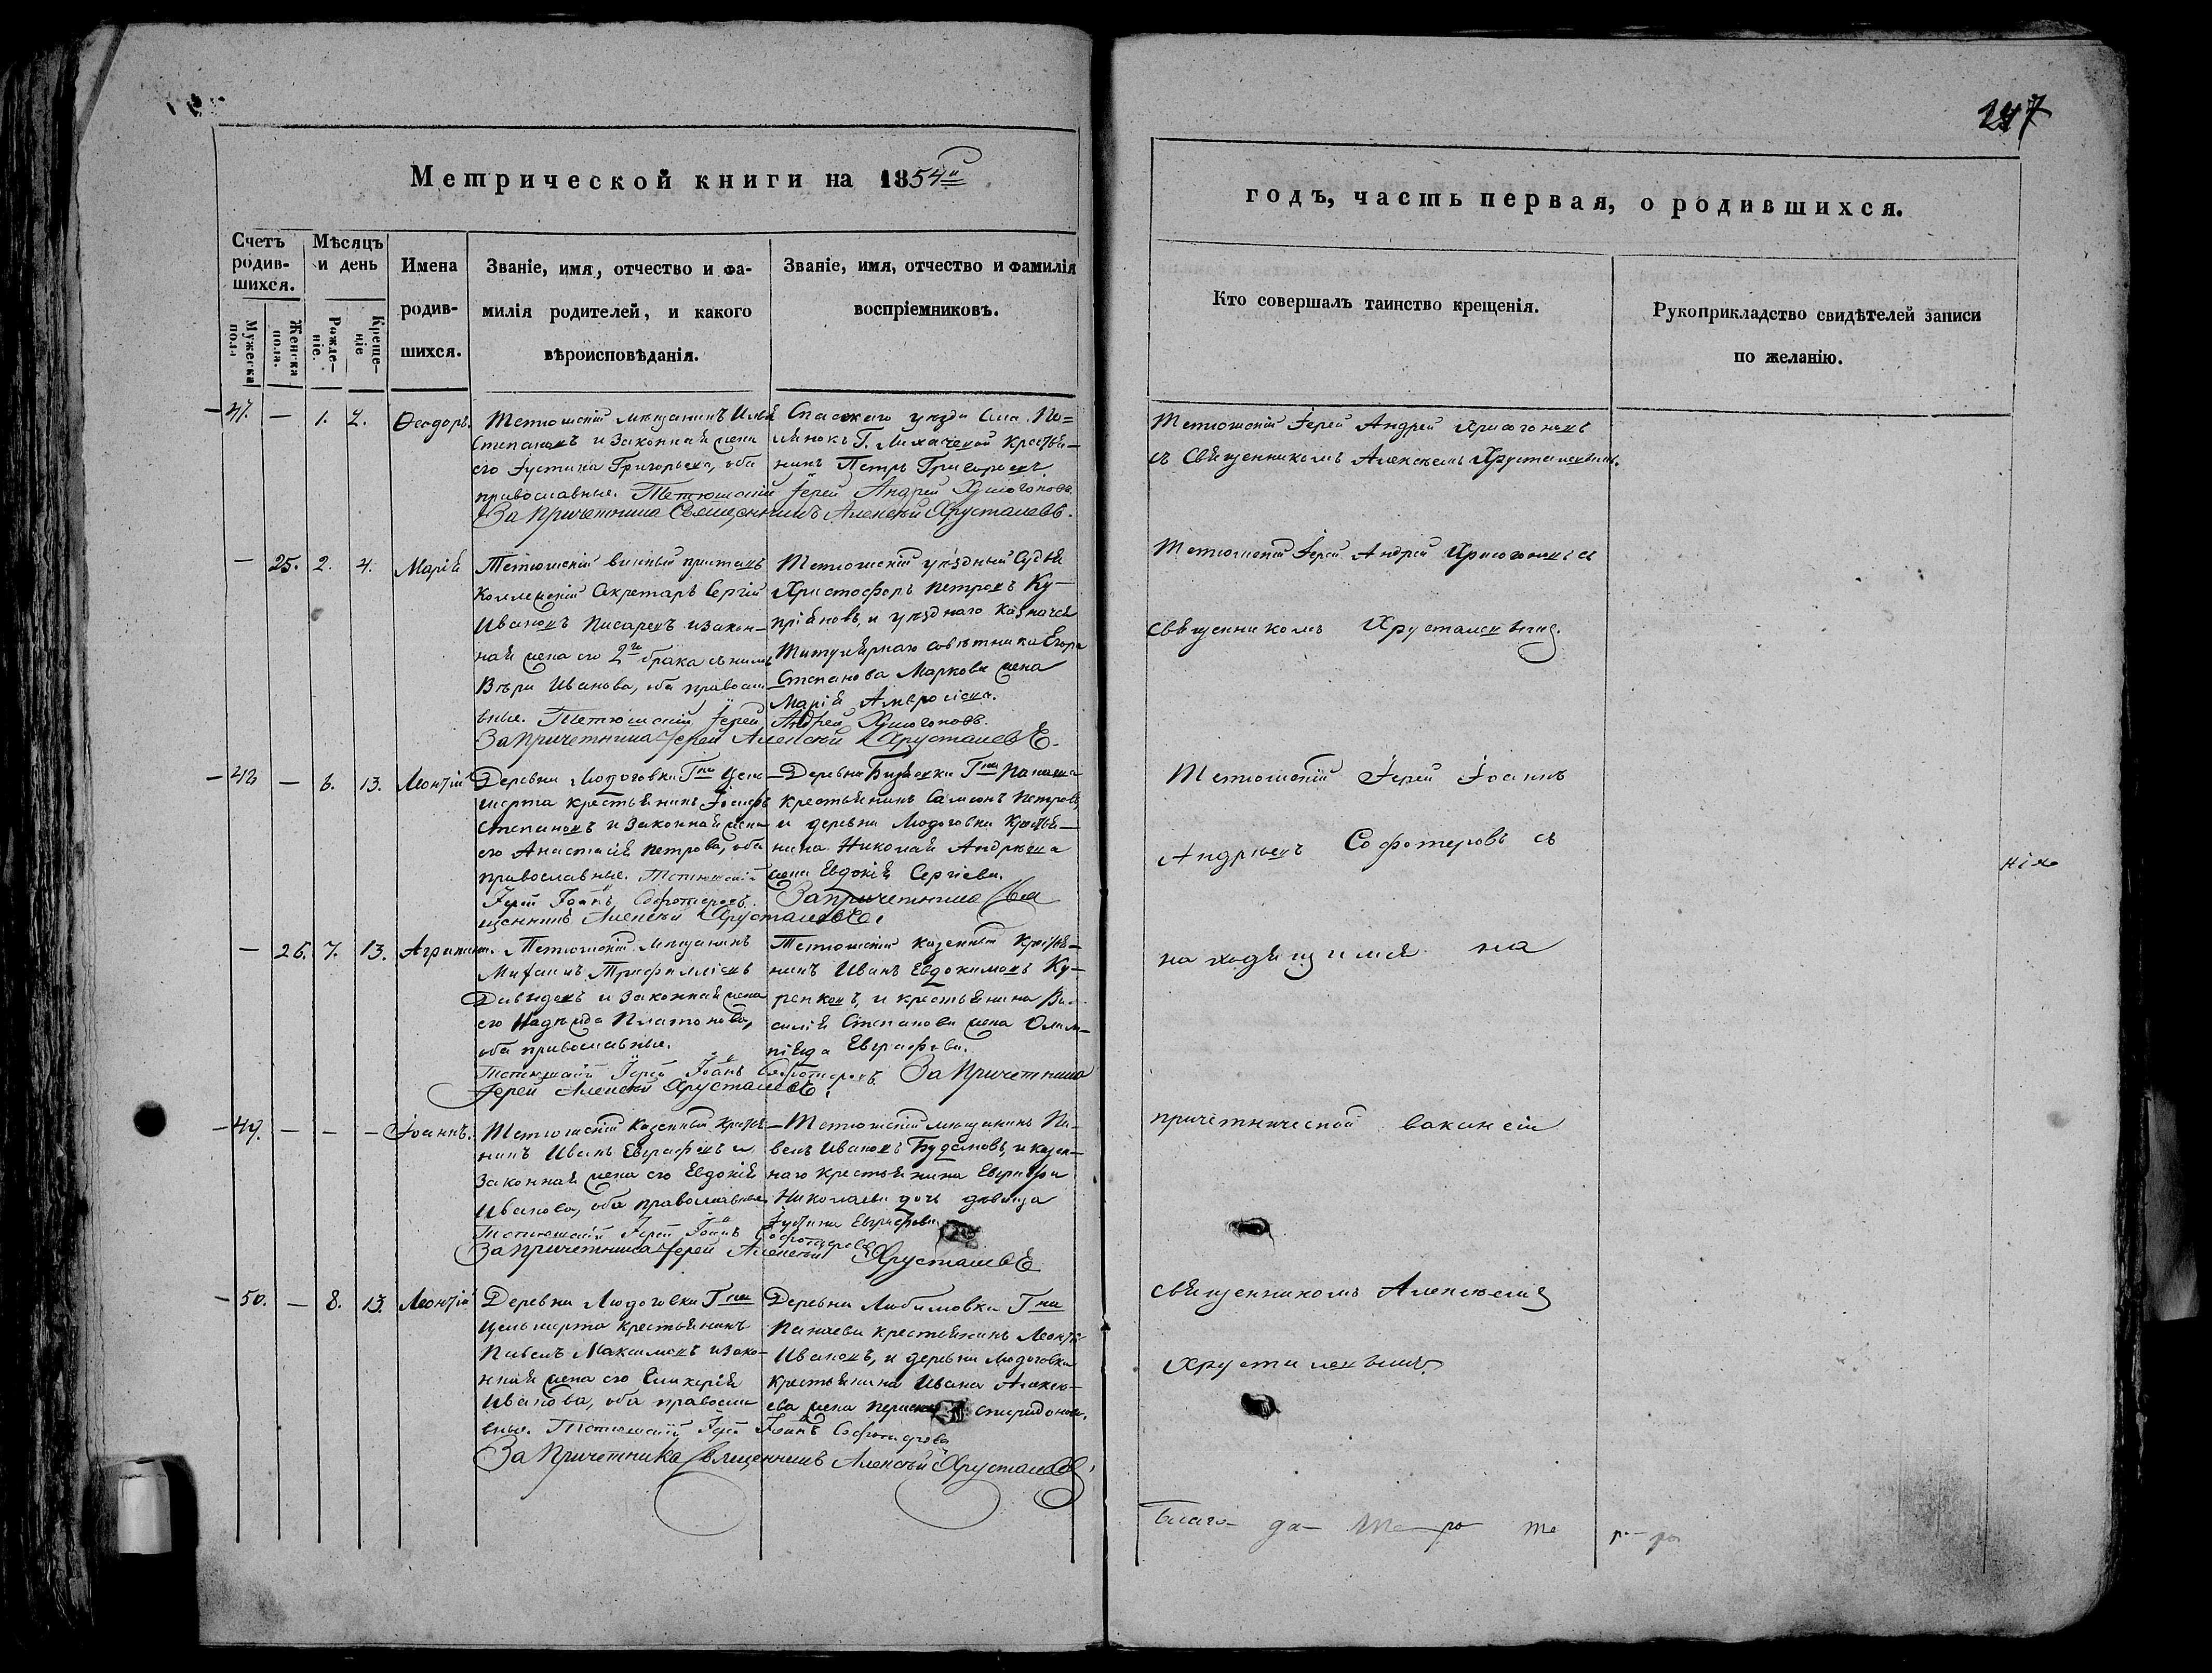 247
Метрической книги на 1854й
годъ, часть первая, о родившихся.
Счетъ родившихся.
Мужеска пола
Женска пола.
Мѣсяцъ и день
Рожденіе.
Крещеніе
Имена родившихся.
Званіе, имя, отчество и фамилія родителей, и какого вѣроисповѣданія.
Званіе, имя, отчество и фамилія воспріемниковъ.
Кто совершалъ таинство крещенія.
Рукоприкладство свидѣтелей записи по желанію.
47. — 1. 2. Ѳеодоръ.
Тетюшскій мѣщанинъ Илья
Степановъ и законная жена
его Іустина Григорьева, оба
православные. Тетюшскій Іерей Андрей Хрисогоновъ.
За причетника Священникъ Алексѣй Хрусталевъ.
Спаскаго уѣзда
Г. Лихачевой крестья-
нинъ Петръ Григорьевъ.
Тетюшскій Іерей Андрей Хрисогоновъ
съ Священникомъ Алексѣемъ Хрусталевымъ.
— 25. 2. 4. Марія
Тетюшскій винный приставъ
Коллежскій Секретарь Сергій
Ивановъ Писаревъ и закон-
ная жена его 2го брака съ нимъ
Вѣра Иванова, оба правосла-
вные. Тетюшскій Іерей Андрей Хрисогоновъ.
За причетника Іерей Алексѣй Хрусталевъ.
Тетюшскій уѣздный Судья
Христофоръ Петровъ Ку-
пріяновъ, и уѣзднаго казначея
Титулярнаго совѣтника Егора
Степанова Маркова жена
Марія Амвросіева.
Тетюшскій Іерей Андрей Хрисогоновъ съ
священникомъ Хрусталевымъ.
48 — 6. 13. Леонтій
Деревни Людоговки Гна
крестьянинъ Іосифъ
Степановъ и законная жена
его Анастасія Петрова, оба
православные. Тетюшскій
Іерей Іоаннъ Софотеровъ. За причетника Свя
щенникъ Алексѣй Хрусталевъ.
Деревни Гна Панаева
крестьянинъ Самсонъ Петровъ,
и деревни Людоговки крестья-
нина Николая Андрѣева
жена Евдокія Сергіева.
Тетюшскій Іерей Іоаннъ
Андрѣевъ Софотеровъ съ
ніе
— 26. 7. 13. Агрипина.
Тетюшскій мѣщанинъ
Михаилъ Трифилліевъ
Давыдовъ и законная жена
его Надежда Платонова,
оба православные.
Тетюшскій Іерей Іоаннъ Софотеровъ. За причетника
Іерей Алексѣй Хрусталевъ.
Тетюшскій казенный крестья-
нинъ Иванъ Евдокимовъ Ку-
ренковъ, и крестьянина Ва-
силія Степанова жена Олим-
піяда Евграфова.
находящимся на
49. — — — Іоаннъ.
Тетюшскій казенный крестья-
нинъ Иванъ Евграфовъ и
законная жена его Евдокія
Иванова, оба православные.
Тетюшскій Іерей Іоаннъ Софотеровъ
За причетника Іерей Алексѣй Хрусталевъ
Тетюшскій мѣщанинъ Па-
велъ Ивановъ Будановъ, и казен-
наго крестьянина Евграфа
Николаева дочь дѣвица
Іустина Евграфова.
причетнической вакансіи
50. — 8. 13. Леонтій
Деревни Людоговки Гна
крестьянинъ
Павелъ Максимовъ и зако-
нная жена его Гликерія
Иванова, оба правосла-
вные. Тетюшскій Іерей Іоаннъ Софотеровъ
За причетника Священникъ Алексѣй Хрусталевъ.
Деревни Любимовки Гна
Панаева крестьянинъ Леонтій
Ивановъ, и деревни Людоговки
крестьянина Ивана Алексѣ-
ева жена Спиридонова.
священникомъ Алексѣемъ
Хрусталевымъ.